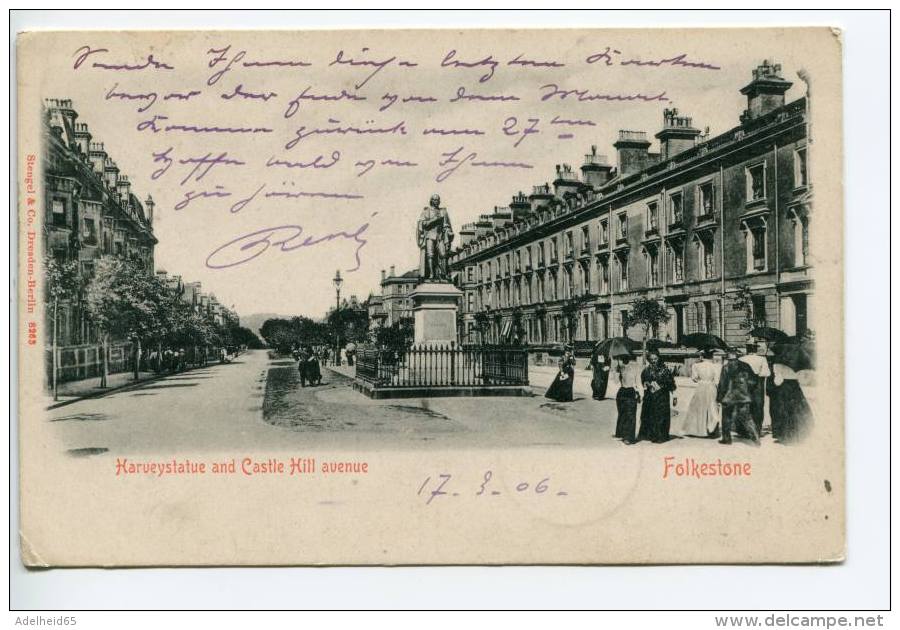 Sende Ihnen diese letzten Karten
bevor der Ende von dem Monat
Komme zurück am 27ten
Hoffe bald von Ihnen
zu hören
René
Stengel & Co. Dresden-Berlin 8263
Harveystatue and Castle Hill avenue
Folkestone
17. 3. 06.
Adelheid65
www.delcampe.net